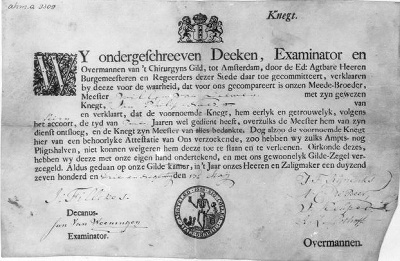 Knegt.
WY ondergeschreeven Deeken, Examinator en
Overmannen van 't Chirurgyns Gild, tot Amsterdam, door de Ed: Agtbare Heeren
Burgemeesteren en Regeerders dezer Stede daar toe gecommitteert, verklaaren
by deeze voor de waarheid, dat voor ons gecompareert is onzen Meede-Broeder,
Meester met zyn gewezen
Knegt, van
en verklaart, dat de voornoemde Knegt, hem eerlyk en getrouwelyk, volgens
het accoort, de tyd van Jaren wel gedient heeft, overzulks de Meester hem van zyn
dienst ontsloeg, en de Knegt zyn Meester van alles bedankte. Dog alzoo de voornoemde Knegt
hier van een behoorlyke Attestatie van Ons verzoekende, zoo hebben wy zulks Ampts- en
Pligtshalven, niet konnen weigeren hem deeze toe te staan en te verleenen. Oirkonde dezes,
hebben wy deeze met onze eigen hand ondertekend, en met ons gewoonelyk Gilde-Zegel
verzegeld. Aldus gedaan op onze Gilde kamer, in 't Jaar onzes Heeren en Zaligmaker een duyzend
zeven honderd en
Decanus.
Jan Van Wenningen
Examinator.
Overmannen.